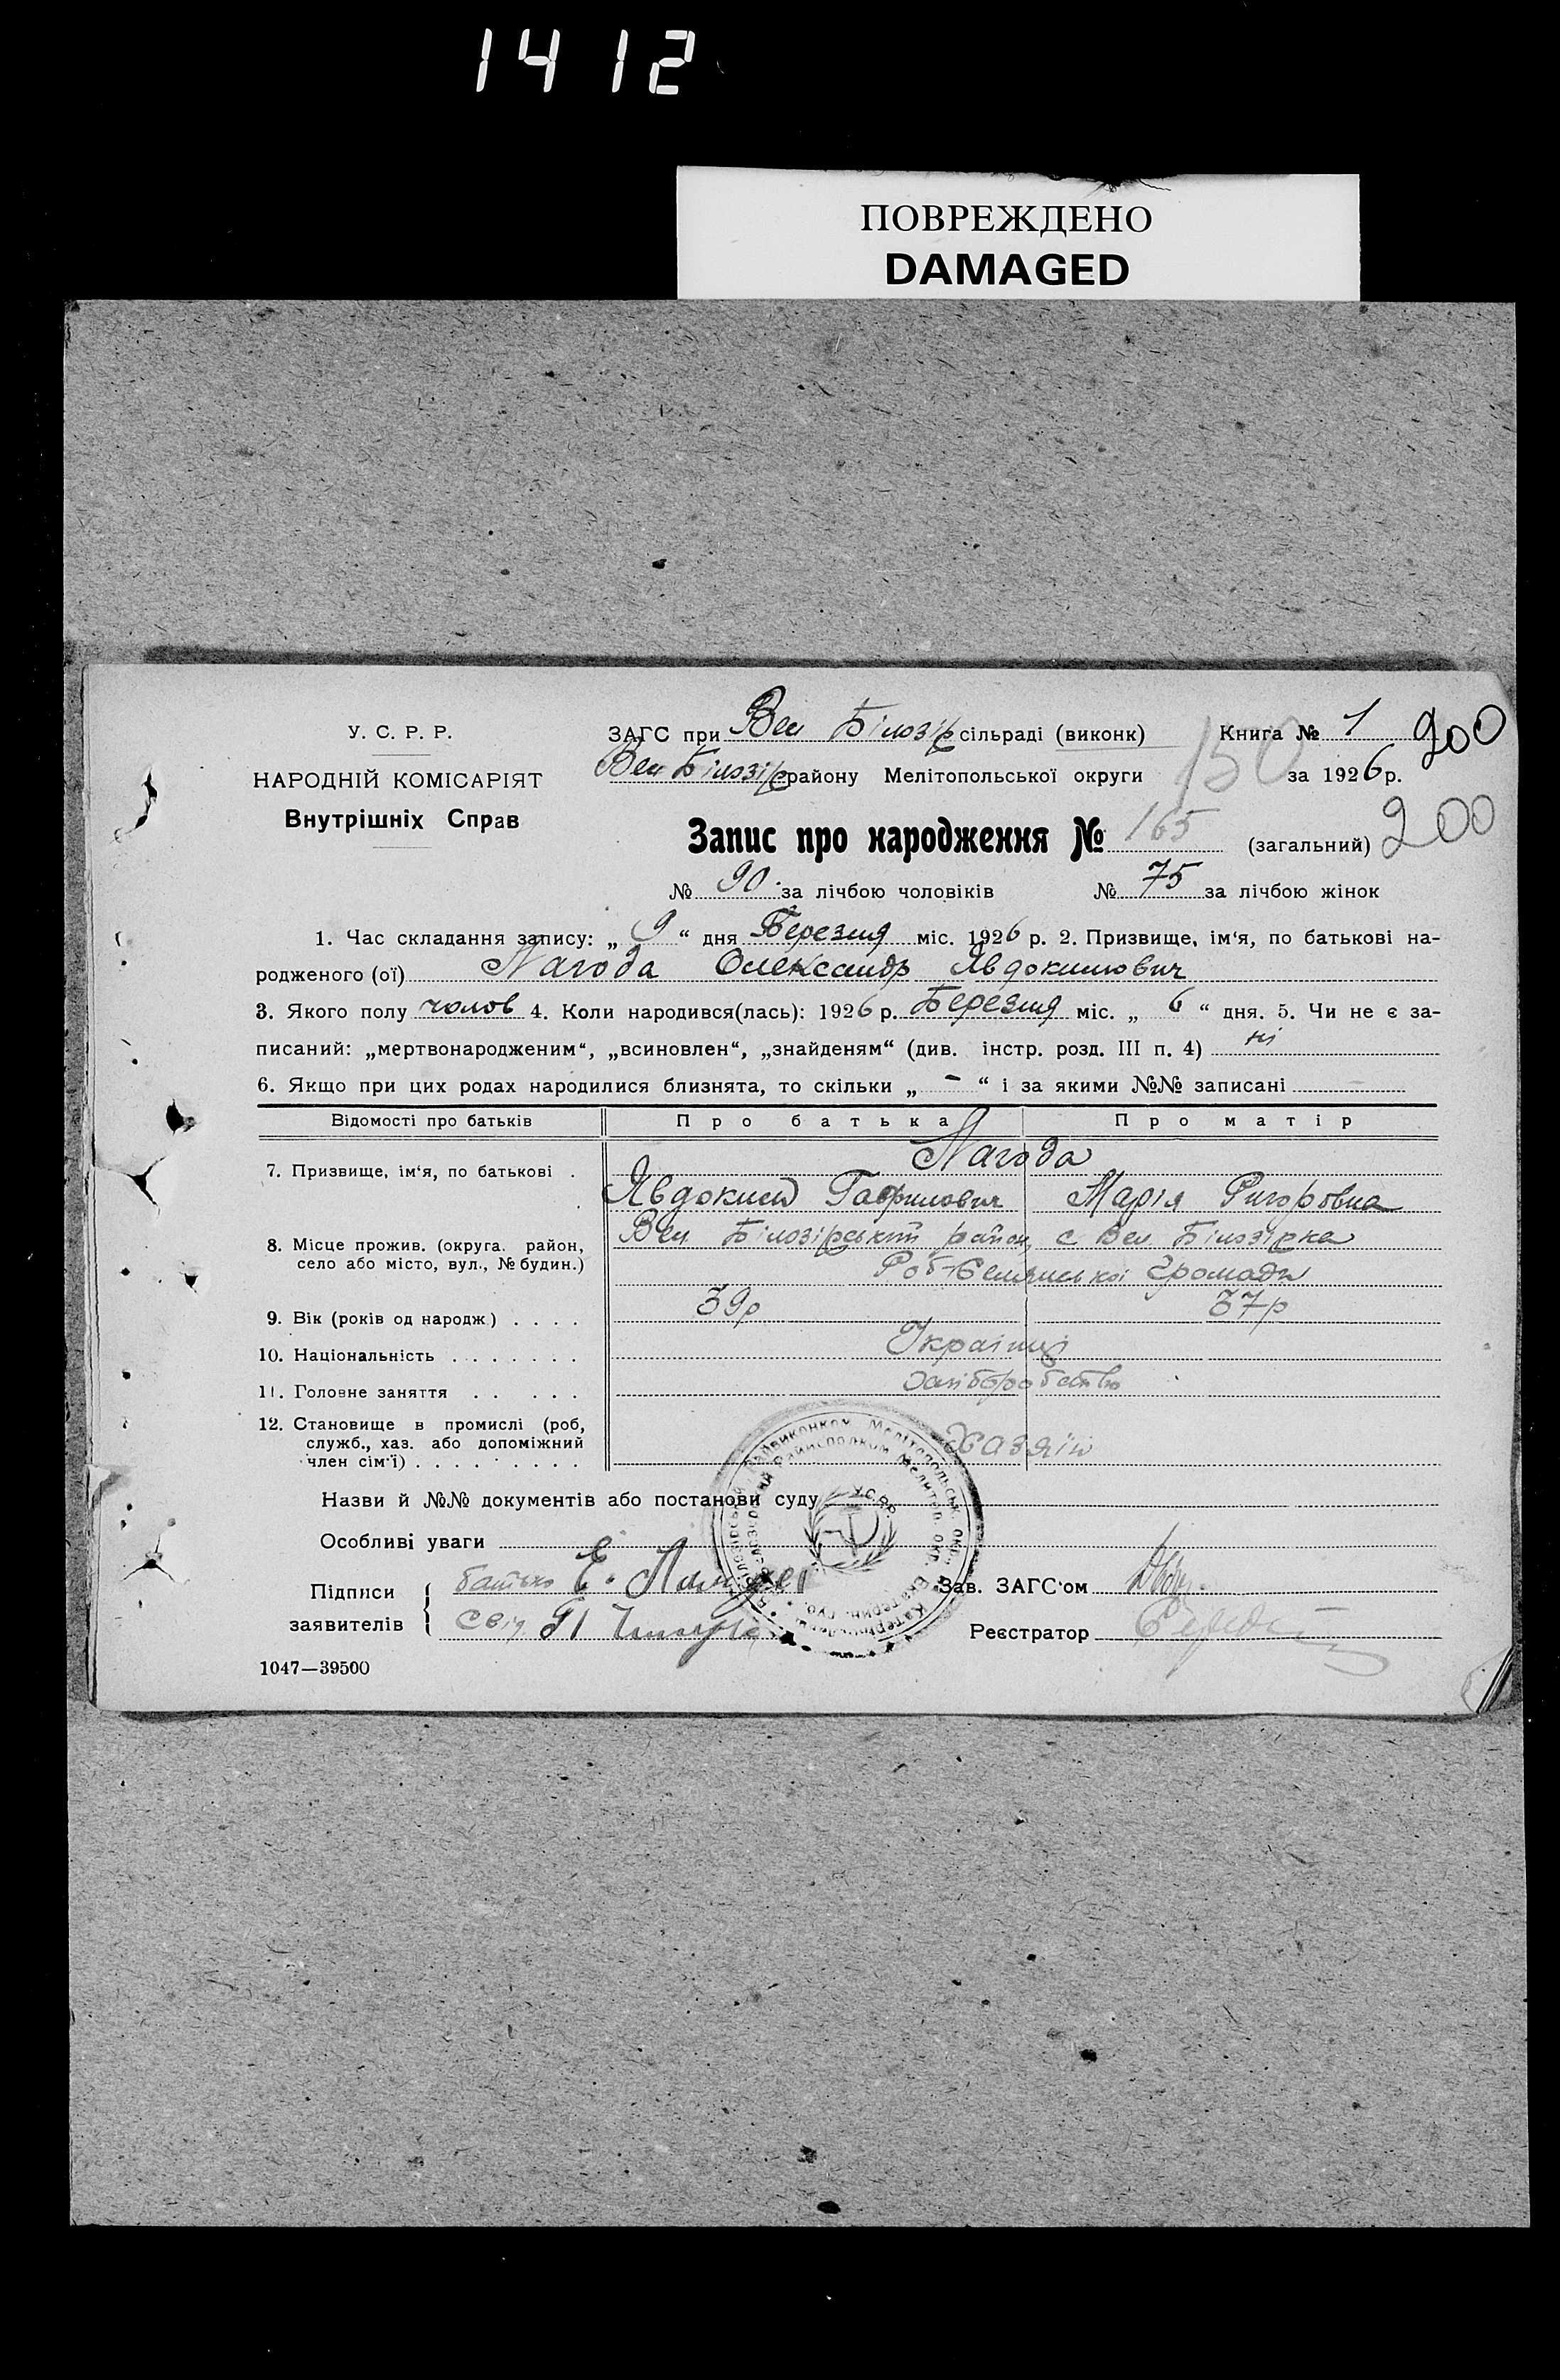 1412
ПОВРЕЖДЕНО
DAMAGED
У. С. Р. Р.
НАРОДНІЙ КОМІСАРІЯТ
Внутрішніх Справ
ЗАГС при Вел Білозір сільраді (виконк) Книга № 1 200
Вел Білозір району Мелітопольської округи 150 за 1926 р.
Запис про народження № 165 (загальний) 200
№ 90 за лічбою чоловіків № 75 за лічбою жінок
1. Час складання запису: „ 9 “ дня Березня міс. 1926 р. 2. Призвище, ім‘я, по батькові на-
родженого (ої) Нагода Олександр Явдокимович
3. Якого полу чолов 4. Коли народився(лась): 1926 р. Березня міс. „ 6 “ дня. 5. Чи не є за-
писаний: „мертвонародженим“, „всиновлен“, „знайденям“ (див. інстр. розд. III п. 4) ні
6. Якщо при цих родах народилися близнята, то скільки „ - “ і за якими №№ записані
Відомості про батьків Про батька Про матір
Нагода
7. Призвище, ім‘я, по батькові . Явдоким Гаврилович Марія Григоровна
8. Місце прожив. (округа. район, село або місто, вул., № будин.) Вел Білозірський район, с Вел Білозірка
Роб-Селянської Громади
9. Вік (років од народж) . . . . 39р 37р
10. Національність . . . . . . . Українці
11. Головне заняття . . . . . Хліборобство
12. Становище в промислі (роб,
служб., хаз. або допоміжний
член сім‘ї) . . . . . . . . . Хазяїн
Назви й №№ документів або постанови суду
Особливі уваги
Підписи
заявителів
батько Е.
свід
У.С.Р.Р.
Зав. ЗАГС‘ом
Реєстратор
1047—39500